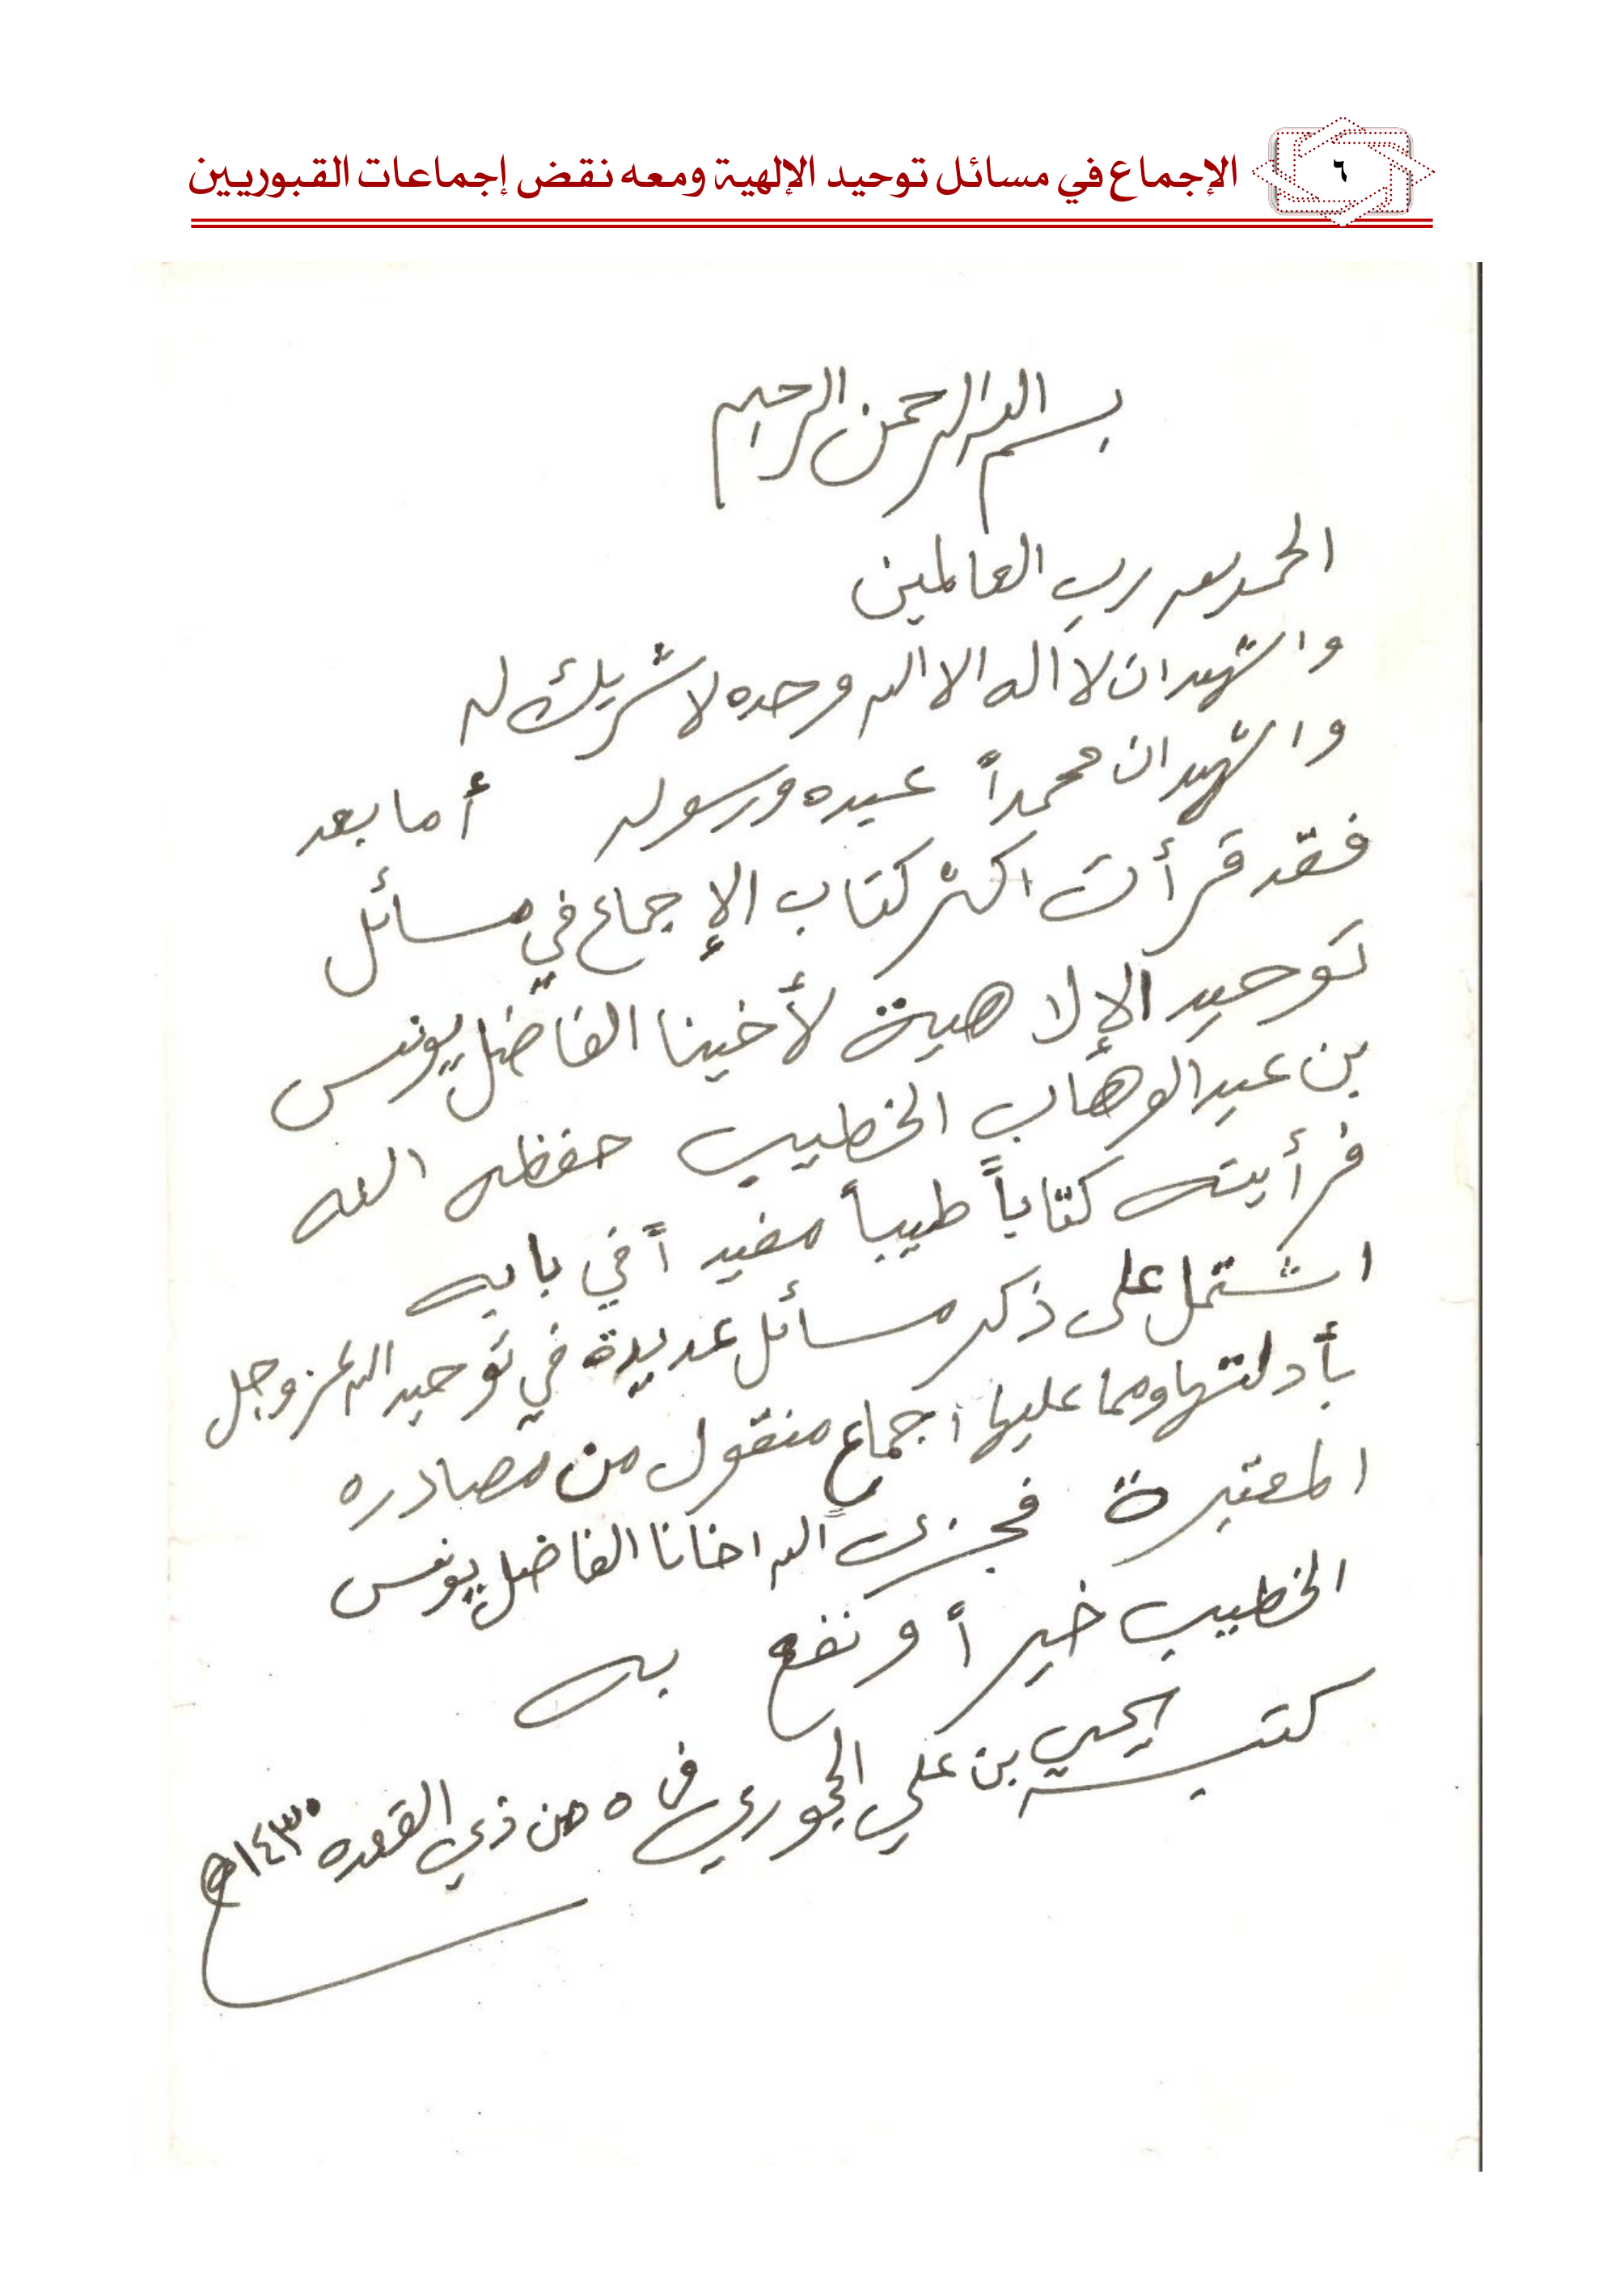 ٦
الإجماع في مسائل توحيد الإلهية ومعه نقض إجماعات القبوريين
بسم الله الرحمن الرحيم
الحمد لله رب العالمين
واشهد ان لا اله الا الله وحده لا شريك له
واشهد ان محمداً عبده ورسوله أما بعد
فقد قرأت اكثر كتاب الإجماع في مسائل
توحيد الإلاهية لأخينا الفاضل يونس
بن عبد الوهاب الخطيب حفظه الله
فرأيته كتاباً طيباً مفيداً في بابه
اشتمل على ذكر مسائل عديدة في توحيد الله عز وجل
بأدلتها ومما عليها اجماع منقول من مصادره
المعتبرة فجزى الله اخانا الفاضل يونس
الخطيب خيراً ونفع به
كتبه يحيى بن علي الحجوري في ٥ من ذي القعده ١٤٣٠هـ